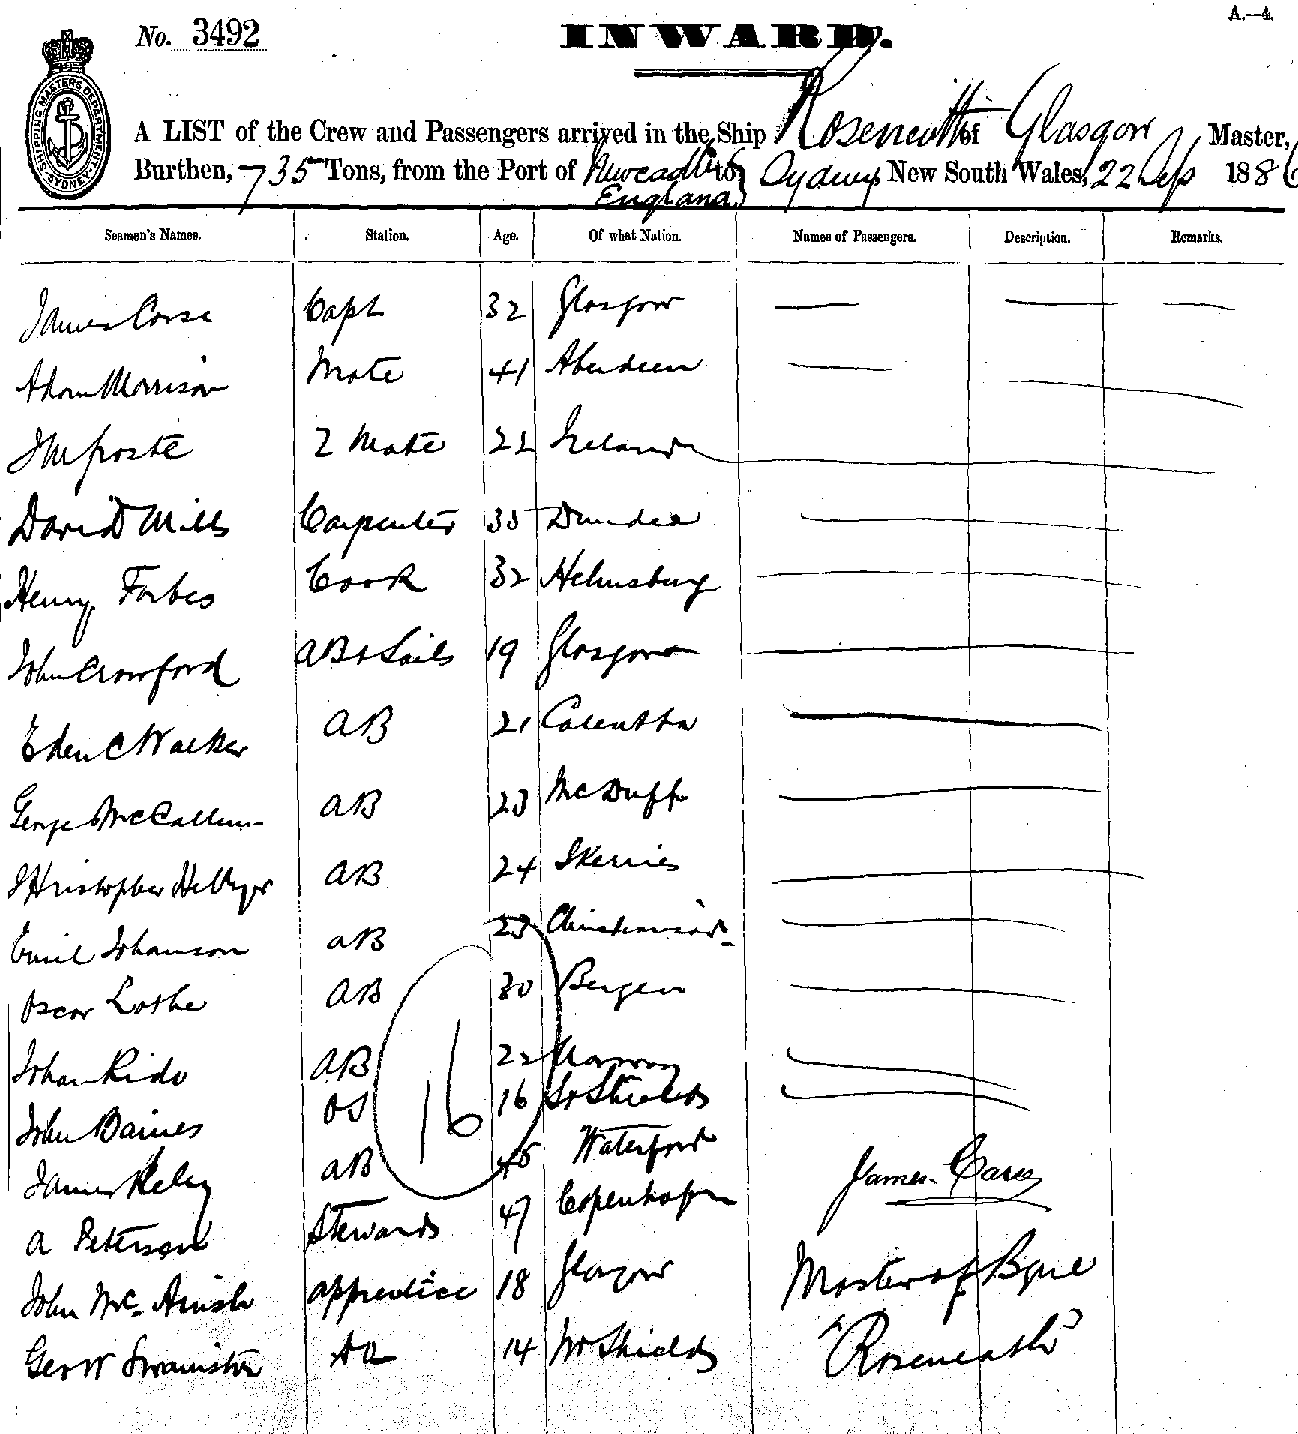 A.—4.
No. 3492
INWARD.
SHIPPING MASTERS DEPARTMENT SYDNEY
A LIST of the Crew and Passengers arrived in the Ship Roseneath of Glasgow Master,
Burthen, 735 Tons, from the Port of Newcastle England to Sydney New South Wales, 22 Sep 1886
Seamen's Names. Station. Age. Of what Nation. Names of Passengers. Description. Remarks.
James Carse Capt 32 Glasgow
Morrison Mate 41 Aberdeen
2 Mate 22 Ireland
David Mills Carpenter Dundee
Henry Forbes Cook 32 Helensburg
John Crawford AB & Sails 19 Glasgow
Eden C Walker AB 21 Calcutta
George McCallum AB 23 McDuff
AB 24 Skerries
Emil Johanson AB 23
Oscar Lothe AB 30 Bergen
Johan Rido AB 22 Norway
John Baines OS 16 So Shields
James AB 45 Waterford
A Peterson Stewards 47 Copenhagen
John Mc Ainsh apprentice 18 Glasgow
Geo W Swainston do 14 No Shields
16
James Carse
Master of Bque
"Roseneath"